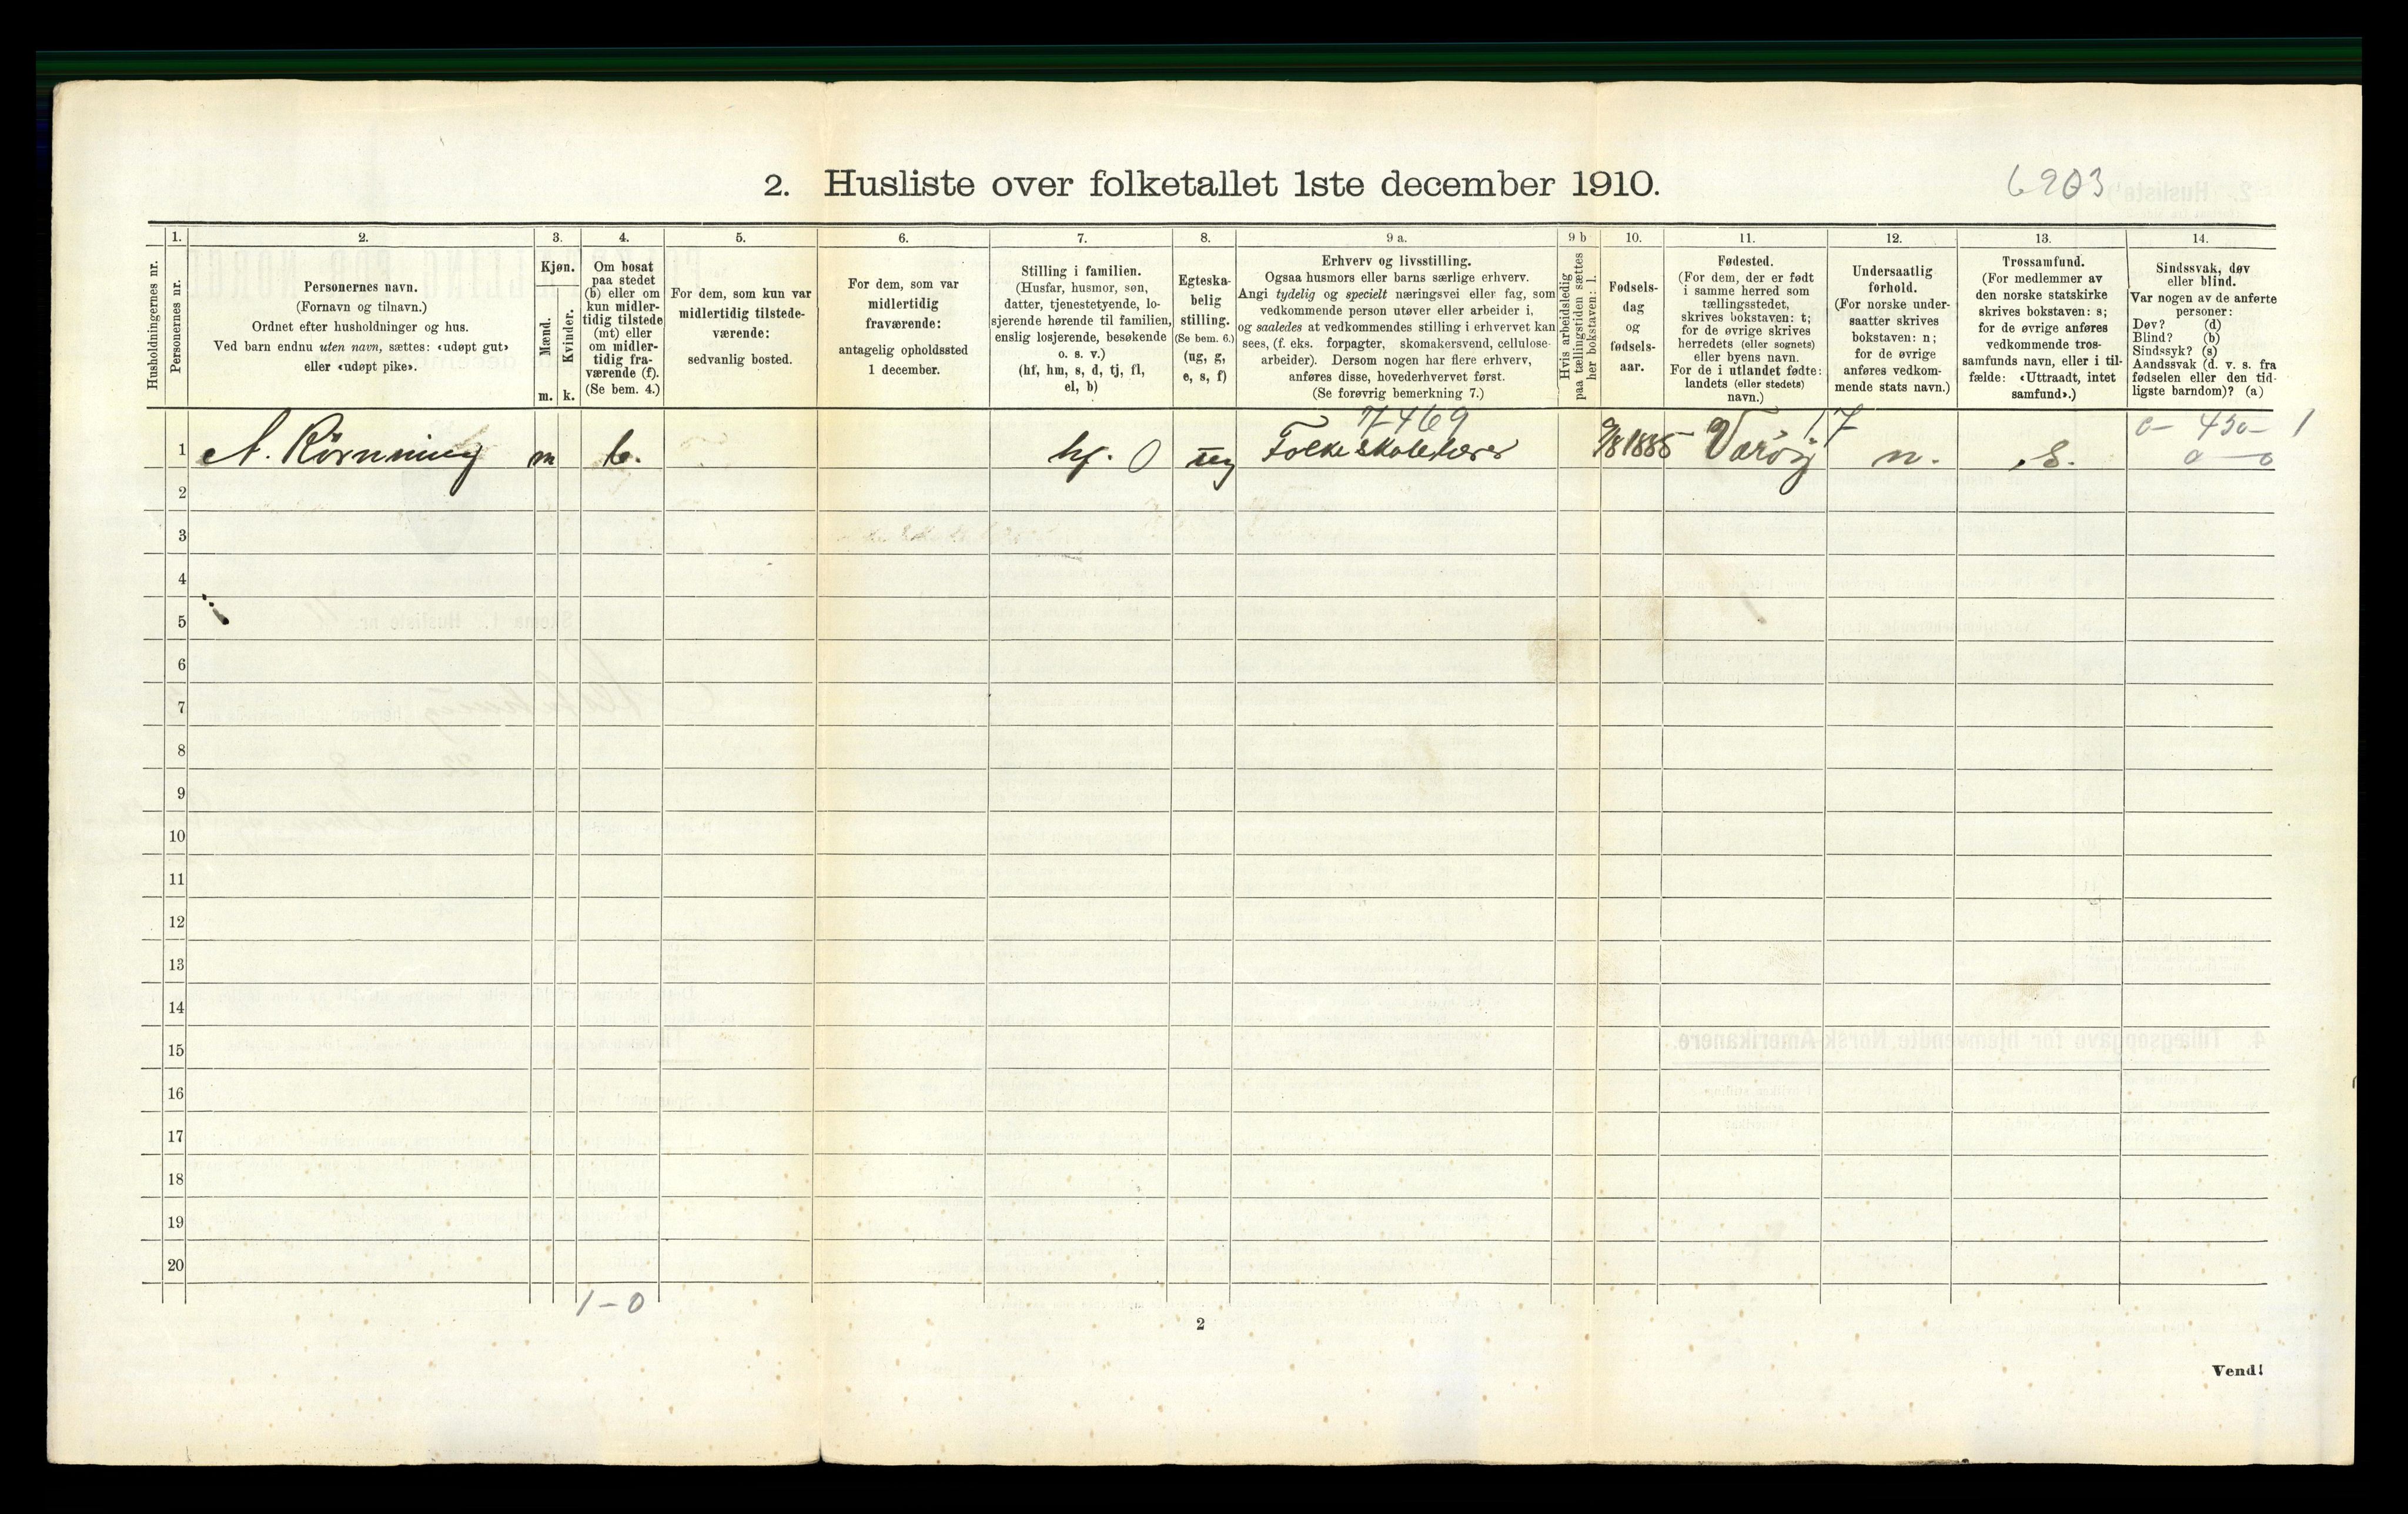 2. Husliste over folketallet 1ste december 1910.
6903
1.
2.
3.
4.
5.
6.
7.
8.
9 a.
9 b
10.
11.
12.
13.
14.
Husholdningernes nr.
Personernes nr.
Personernes navn.
(Fornavn og tilnavn.)
Ordnet efter husholdninger og hus.
Ved barn endnu uten navn, sættes: «udøpt gut»
eller «udøpt pike».
Kjøn.
Mænd.
Kvinder.
m. k.
Om bosat
paa stedet
(b) eller om
kun midler-
tidig tilstede
(mt) eller
om midler-
tidig fra-
værende (f).
(Se bem. 4.)
For dem, som kun var
midlertidig tilstede-
værende:
sedvanlig bosted.
For dem, som var
midlertidig
fraværende:
antagelig opholdssted
1 december.
Stilling i familien.
(Husfar, husmor, søn,
datter, tjenestetyende, lo-
sjerende hørende til familien,
enslig losjerende, besøkende
o. s. v.)
(hf, hm, s, d, tj, fl,
el, b)
Egteska-
belig
stilling.
(Se bem. 6.)
(ug, g,
e, s, f)
Erhverv og livsstilling.
Ogsaa husmors eller barns særlige erhverv.
Angi tydelig og specielt næringsvei eller fag, som
vedkommende person utøver eller arbeider i,
og saaledes at vedkommendes stilling i erhvervet kan
sees, (f. eks. forpagter, skomakersvend, cellulose-
arbeider). Dersom nogen har flere erhverv,
anføres disse, hovederhvervet først.
(Se forøvrig bemerkning 7.)
Hvis arbeidsledig
paa tællingstiden sættes
her bokstaven: l.
Fødsels-
dag
og
fødsels-
aar.
Fødested.
(For dem, der er født
i samme herred som
tællingsstedet,
skrives bokstaven: t;
for de øvrige skrives
herredets (eller sognets)
eller byens navn.
For de i utlandet fødte:
landets (eller stedets)
navn.)
Undersaatlig
forhold.
(For norske under-
saatter skrives
bokstaven: n;
for de øvrige
anføres vedkom-
mende stats navn.)
Trossamfund.
(For medlemmer av
den norske statskirke
skrives bokstaven: s;
for de øvrige anføres
vedkommende tros-
samfunds navn, eller i til-
fælde: «Uttraadt, intet
samfund».)
Sindssvak, døv
eller blind.
Var nogen av de anførte
personer:
Døv? (d)
Blind? (b)
Sindssyk? (s)
Aandssvak (d. v. s. fra
fødselen eller den tid-
ligste barndom)? (a)
7469
17
0- 450- 1
1 A. Rørnning m b. hf. 0 ug Folkeskolelærer 9/8 1885 Værøy n. s. 0 0
2
3
4
5
6
7
8
9
10
11
12
13
14
15
16
17
18
19
20
1-0
2
Vend!